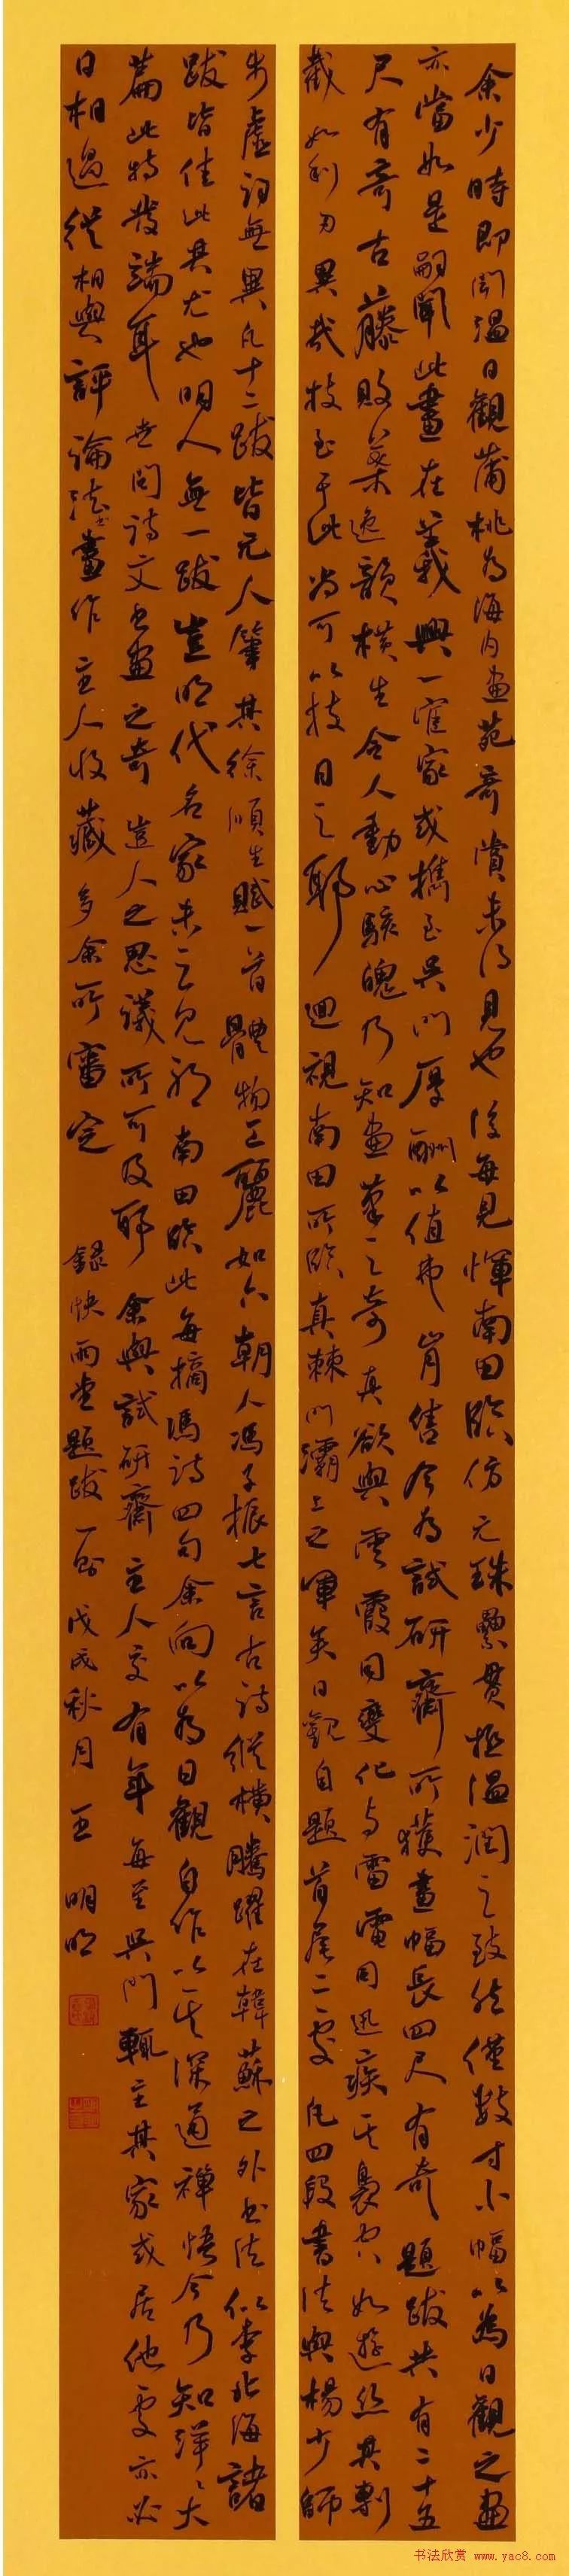 余少时即闻温日觀蒲桃為海内畫苑奇賞未得見也後每見惲南田臨仿元珠纍貫極温潤之致然僅數寸小幅以為日觀之畫
亦當如是嗣聞此畫在義興一宦家或攜至吳門厚酬以值弗肯售今為試研齋所獲畫幅長四尺有奇題跋共有二十五
尺有奇古藤敗葉逸韻橫生令人動心駭魄乃知畫筆之奇真欲與雲霞同變化与雷電同迅疾其裊空如遊絲其剸
截如利刃異哉技至于此尚可以技目之耶迴視南田所臨真棘門灞上之軍矣日觀自題首尾二處凡四段書法與楊少師
步虛詞無異凡十二跋皆元人筆其徐順生賦一首體物工麗如六朝人馮子振七言古詩縱橫騰躍在韓蘇之外書法似李北海諸
跋皆佳此其尤也明人無一跋豈明代名家未之見耶南田臨此每摘馮詩四句余向以為日觀自作以其深通禪悟今乃知洋洋大
篇此特發端耳世間詩文書畫之奇豈人之思議所可及耶余與試研齋主人交有年每至吳門輒主其家或居他處亦必
日相過從相與評論法書畫作主人收藏多余所審定 錄快雨堂題跋一則戊戌秋月王明明
书法欣赏 www.yac8.com